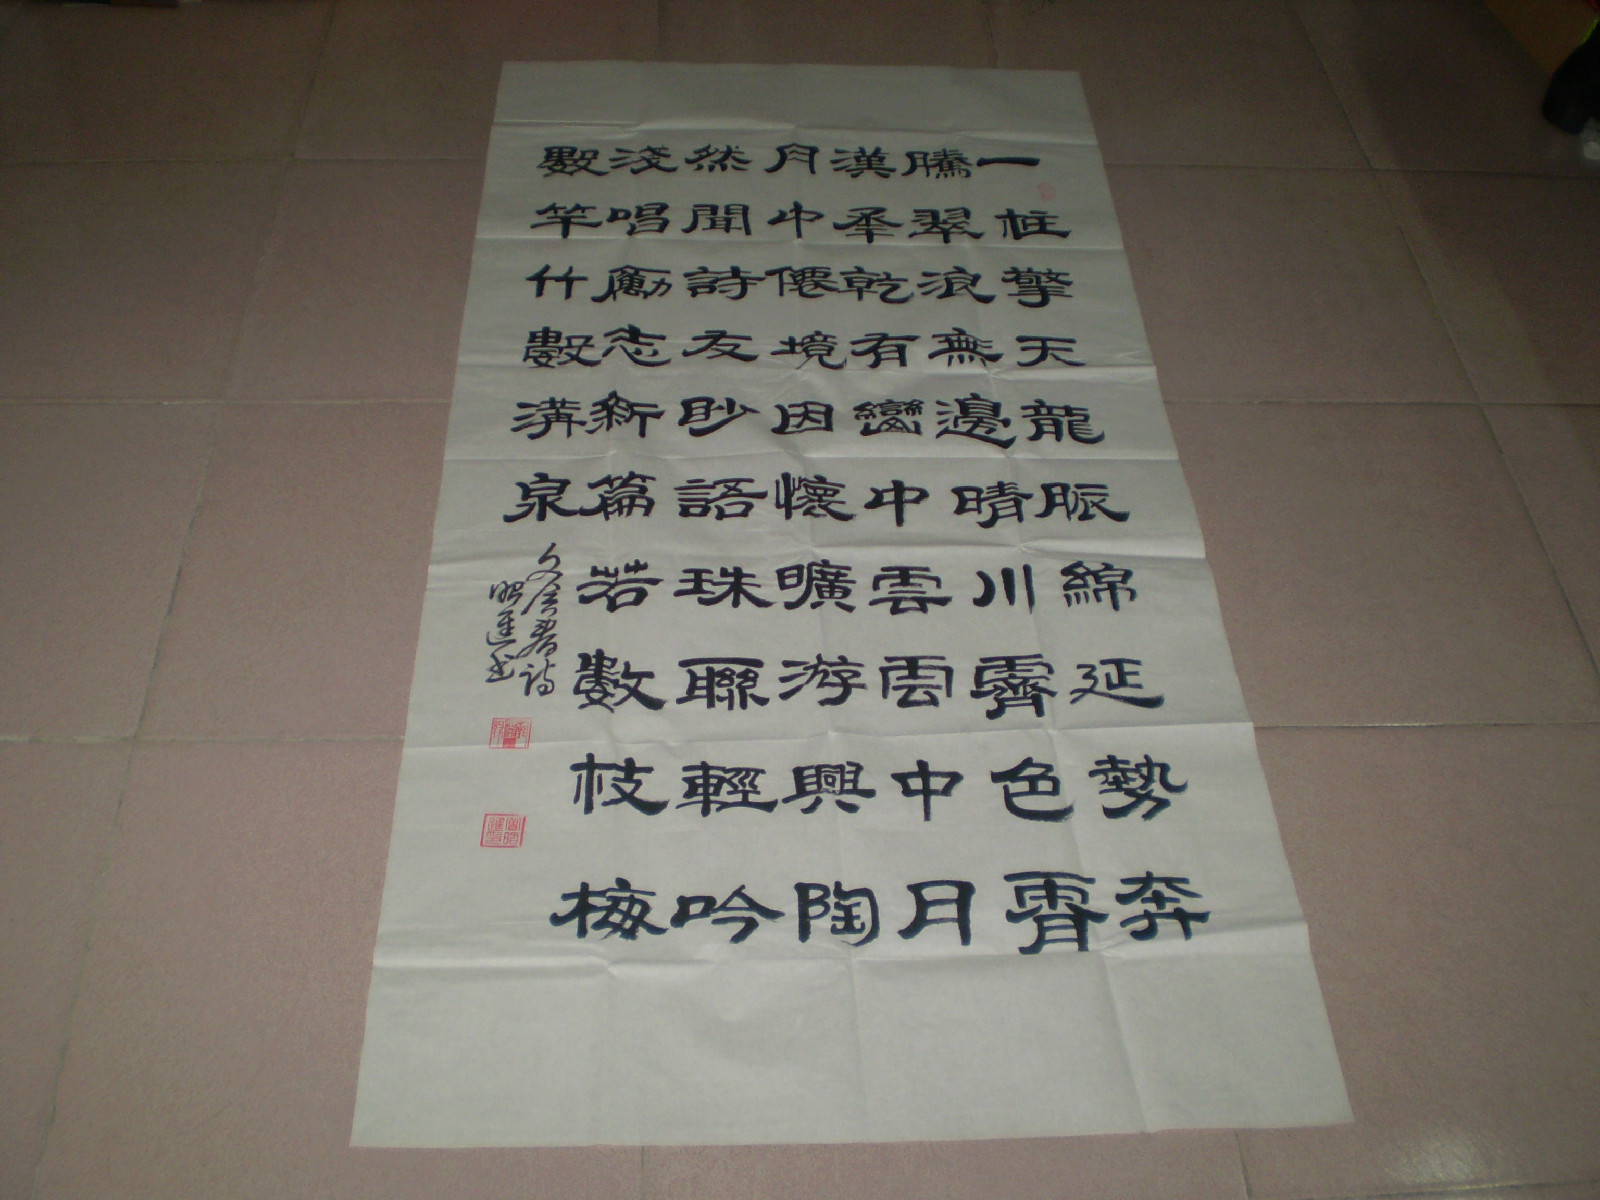 一柱擎天龍脈綿延勢奔
騰翠浪無邊晴川霽色霄
漢峯乾有巒中雲雲中月
月中僊境因懷曠游興陶
然聞詩友眇語珠聯輕吟
淺唱勵志新篇若數枝梅
數竿竹數溝泉
詩